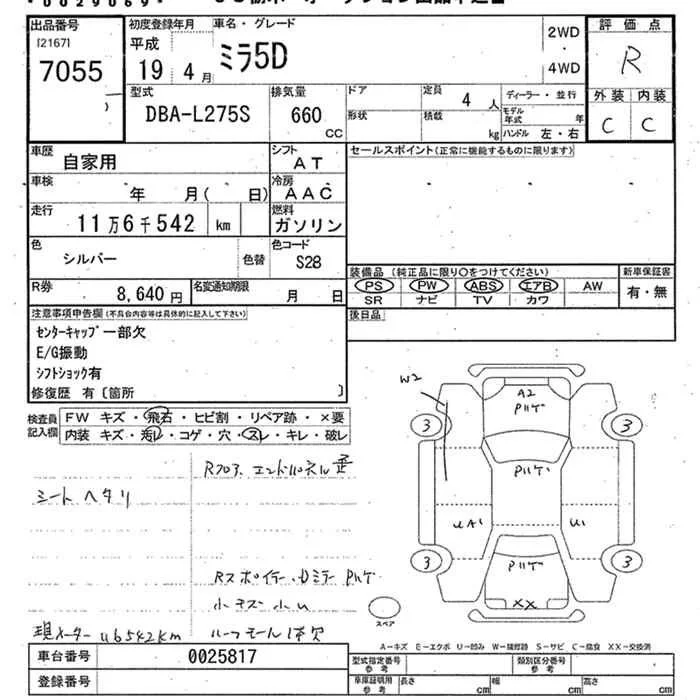 出品番号
[2167]
7055
初度登録年月
平成
19 4 月
車名・グレード
ミラ5D
2WD
4WD
評価点
R
外装 内装
C C
型式
DBA-L275S
排気量
660
CC
ドア
定員
4 人
ディーラー・並行
形状
積載
kg
モデル年式
年
ハンドル 左・右
車歴
自家用
シフト
AT
セールスポイント(正常に機能するものに限ります)
車検
年 月( 日)
冷房
AAC
走行
11万6千542 km
燃料
ガソリン
色
シルバー
色替
色コード
S28
装備品 (純正品に限り○をつけてください)
新車保証書
PS PW ABS エアB AW
有・無
SR ナビ TV カワ
R券
8,640 円
名変通知期限
月 日
後日品
注意事項申告欄 (不具合内容等は具体的に記入して下さい)
センターキャップ一部欠
E/G振動
シフトショック有
修復歴 有〔箇所 〕
検査員
記入欄
FW キズ・飛石・ヒビ割・リペア跡・×要
内装 キズ・汚レ・コゲ・穴・スレ・キレ・破レ
Rフロア、エンドパネル歪
シートヘタリ
Rスポイラー、Dミラー Pハゲ
小キズ小U
現メーター116542km
ルーフモール1本欠
W2
A2
Pハゲ
3
3
Pハゲ
UA1
U1
Pハゲ
3
3
XX
スペア
A-キズ E-エクボ U-凹み W-補修跡 S-サビ C-腐食 XX-交換済
車台番号
0025817
登録番号
型式指定番号
参考
類別区分番号
参考
車庫証明用
参考
長さ
cm
幅
cm
高さ
cm